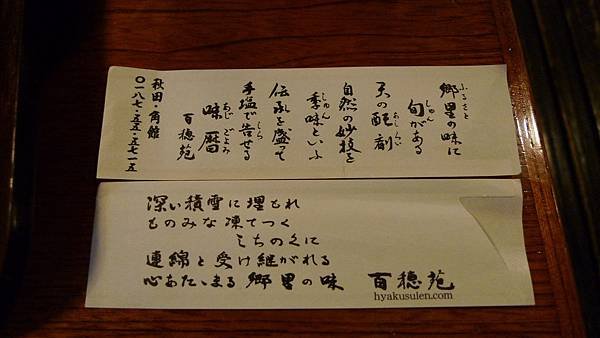 ふるさと
郷里の味に
しゅん
旬がある
あしらい
天の配剤
自然の妙技を
しゅん
季味といふ
伝承を盛って
しら
手塩で告せる
あじごよみ
味暦
百穂苑
秋田・角館
〇一八七・五五・五七一五
深い積雪に埋もれ
ものみな凍てつく
みちのくに
連綿と受け継がれる
心あたゝまる郷里の味 百穂苑
hyakusuien.com